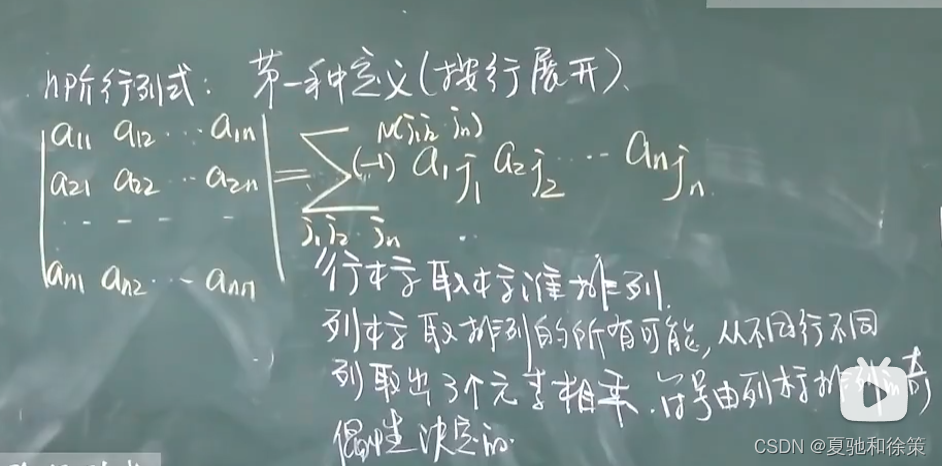 n阶行列式: 第一种定义(按行展开)、
| a11 a12 ··· a1n |
| a21 a22 ·· a2n | = ∑ (-1)^N(j1j2 jn) a1j1 a2j2 ···· anjn.
| - - - - - |
j1j2 jn
| an1 an2 ··- ann |
行标取标准排列.
列标取排列的所有可能, 从不同行不同
列取出3个元素相乘. 符号由列标排列奇
偶性决定的.
CSDN @夏驰和徐策